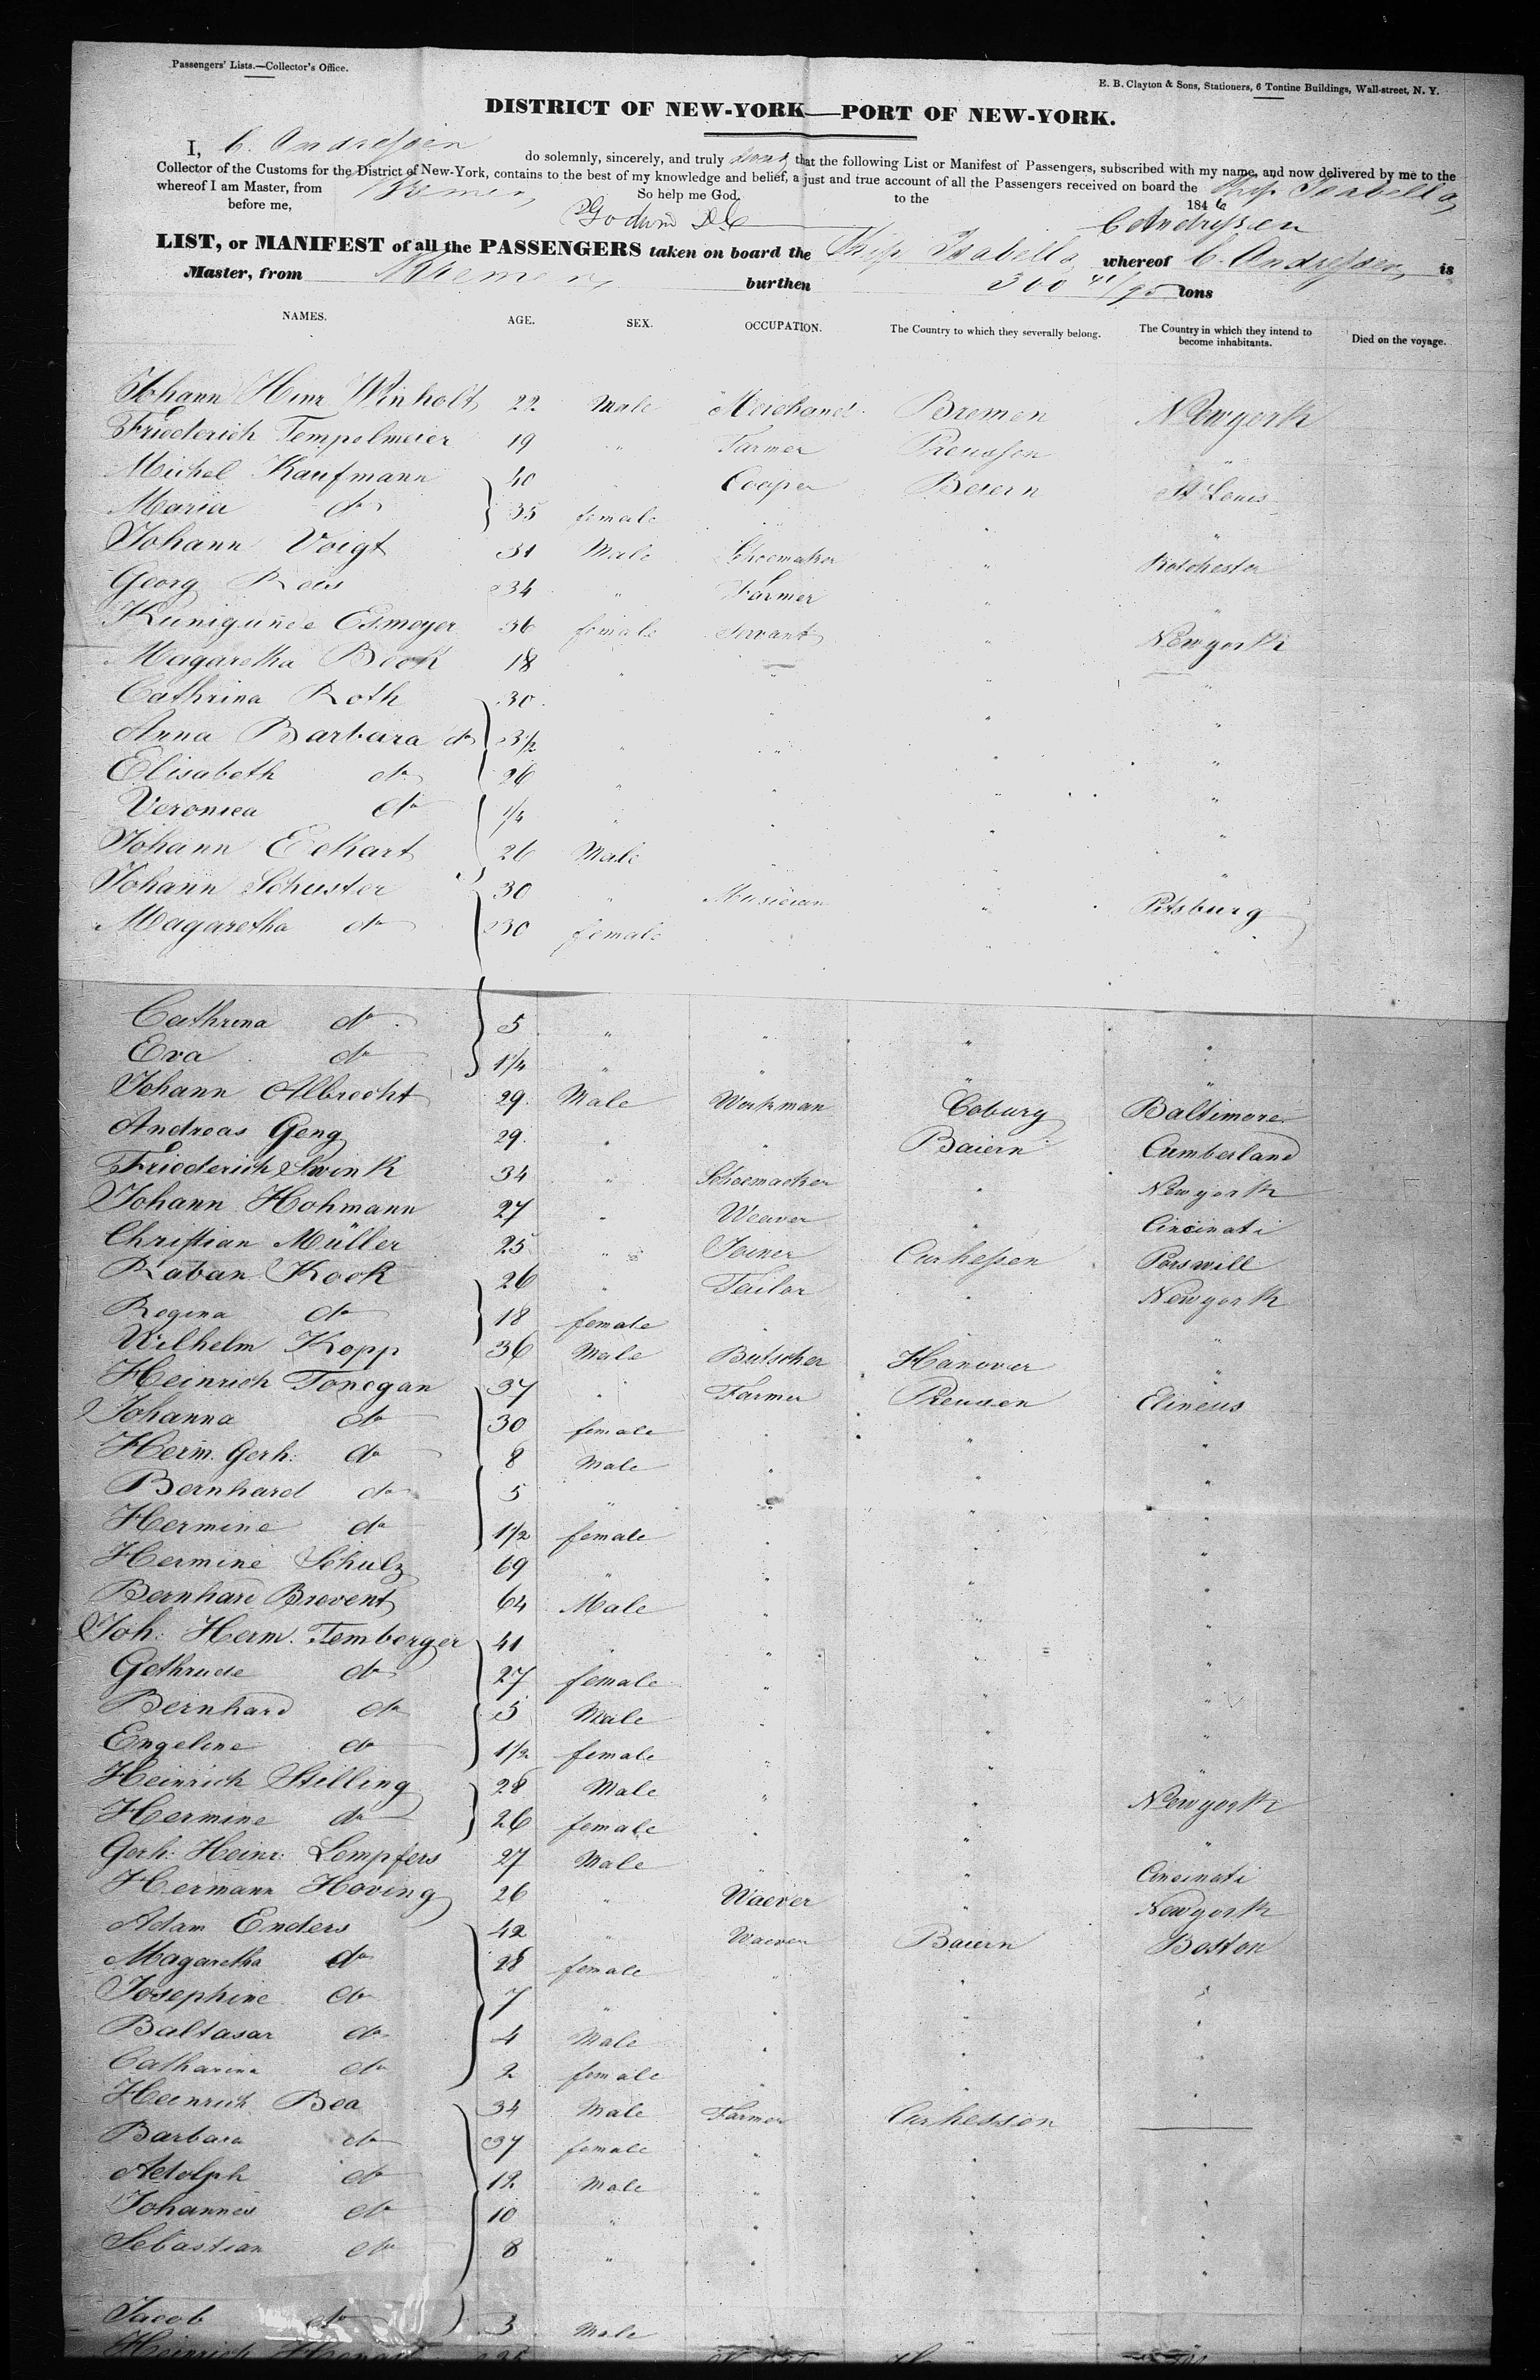 Passengers' Lists.—Collector's Office.
E. B. Clayton & Sons, Stationers, 6 Tontine Buildings, Wall-street, N. Y.
DISTRICT OF NEW-YORK—PORT OF NEW-YORK.
I, C. Andressen do solemnly, sincerely, and truly that the following List or Manifest of Passengers, subscribed with my name, and now delivered by me to the
Collector of the Customs for the District of New-York, contains to the best of my knowledge and belief, a just and true account of all the Passengers received on board the Ship Isabella
whereof I am Master, from Bremen So help me God. to the 184
before me, CAndressen
LIST, or MANIFEST of all the PASSENGERS taken on board the Ship Isabella whereof C. Andressen is
Master, from Bremen burthen 300 /95 tons
NAMES. AGE. SEX. OCCUPATION. The Country to which they severally belong. The Country in which they intend to become inhabitants. Died on the voyage.
Johann Hinr Winholt 22 Male Merchand Bremen Newyork
Friederich Tempelmeier 19 " Farmer Preussen "
Michel Kaufmann 40 " Cooper Beiern St Louis
Maria do 35 female " " "
Johann Voigt 31 Male Shoemaker " Rotchester
Georg 34 " Farmer " "
Kunigunde Esmoyer 36 female Servant " Newyork
Magaretha Book 18 " " " "
Cathrina Roth 30 " " "
Anna Barbara do 3½ " " " "
Elisabeth do 26 " " " "
Veronica do ¼ " " " "
Johann Eckhart 26 Male " " "
Johann Schuster 30 " Musician " Pitsburg
Magaretha do 30 female " " "
Cathrina do 5 " " " "
Eva do 1¼ " " " "
Johann Albrecht 29 Male Workman Coburg Baltimore
Andreas Geng 29 " " Baiern Cumberland
Friederich Swink 34 " Schoemacker " Newyork
Johann Hohmann 27 " Weaver " Cincinati
Christian Müller 25 " Joiner Curhessen Porswill
Raban Kook 26 " Tailor " Newyork
Regina do 18 female " " "
Wilhelm Kopp 36 Male Butscher Hanover "
Heinrich Tonegan 37 " Farmer Preussen Elineus
Johanna do 30 female " " "
Herm. Gerh: do 8 Male " " "
Bernhard do 5 " " " "
Hermine do 1½ female " " "
Hermine Schulz 69 " " " "
Bernhard Brevent 64 Male " " "
Joh: Herm. Temberger 41 " " " "
Gethrude do 27 female " " "
Bernhard do 5 Male " " "
Engeline do 1½ female " " "
Heinrich Stilling 28 Male " " Newyork
Hermine do 26 female " " "
Gerh: Heinr: Lempfers 27 Male " " Cincinati
Hermann Hoving 26 " Waever " Newyork
Adam Enders 42 " Waever Baiern Boston
Magaretha do 28 female " " "
Josephine do 7 " " " "
Baltasar do 4 Male " " "
Catharina do 2 female " " "
Heinrich Bea 34 Male Farmer Curhesson —
Barbara do 37 female " " "
Adolph do 12 Male " " "
Johannes do 10 " " " "
Sebastian do 8 " " " "
Jacob do 3 Male
Heinrich